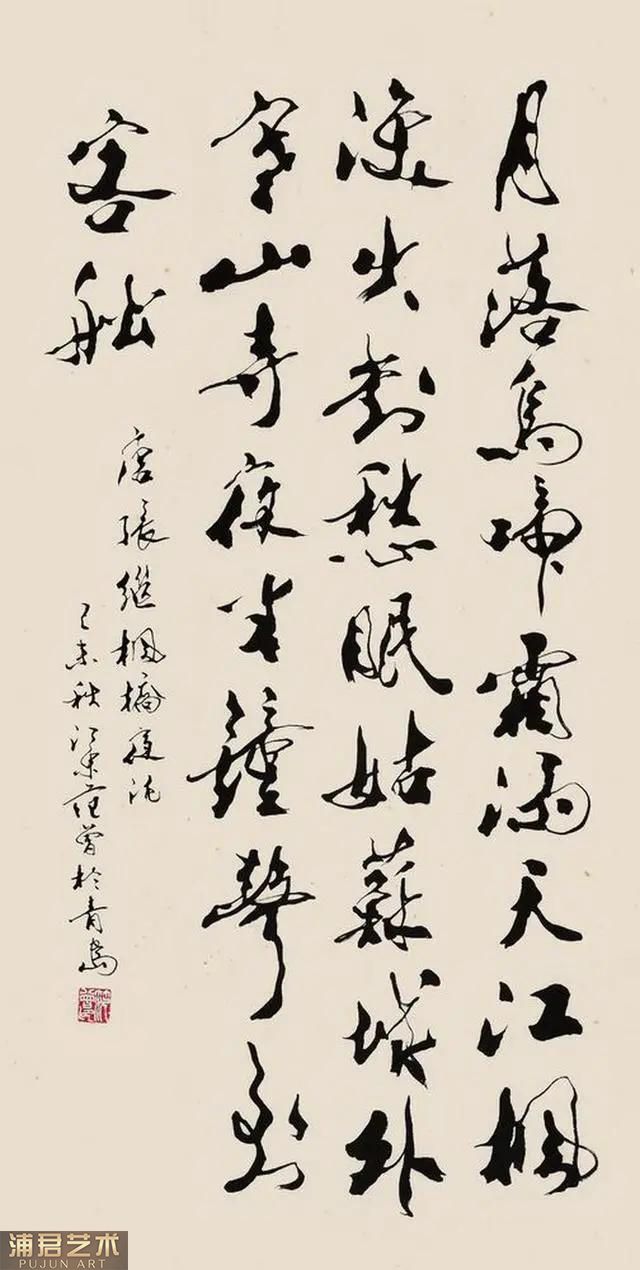 月落烏啼霜滿天江楓
漁火對愁眠姑蘇城外
寒山寺夜半鐘聲到
客船
唐張繼楓橋夜泊
己未秋江東范曾於青島
浦君艺术
PUJUN ART